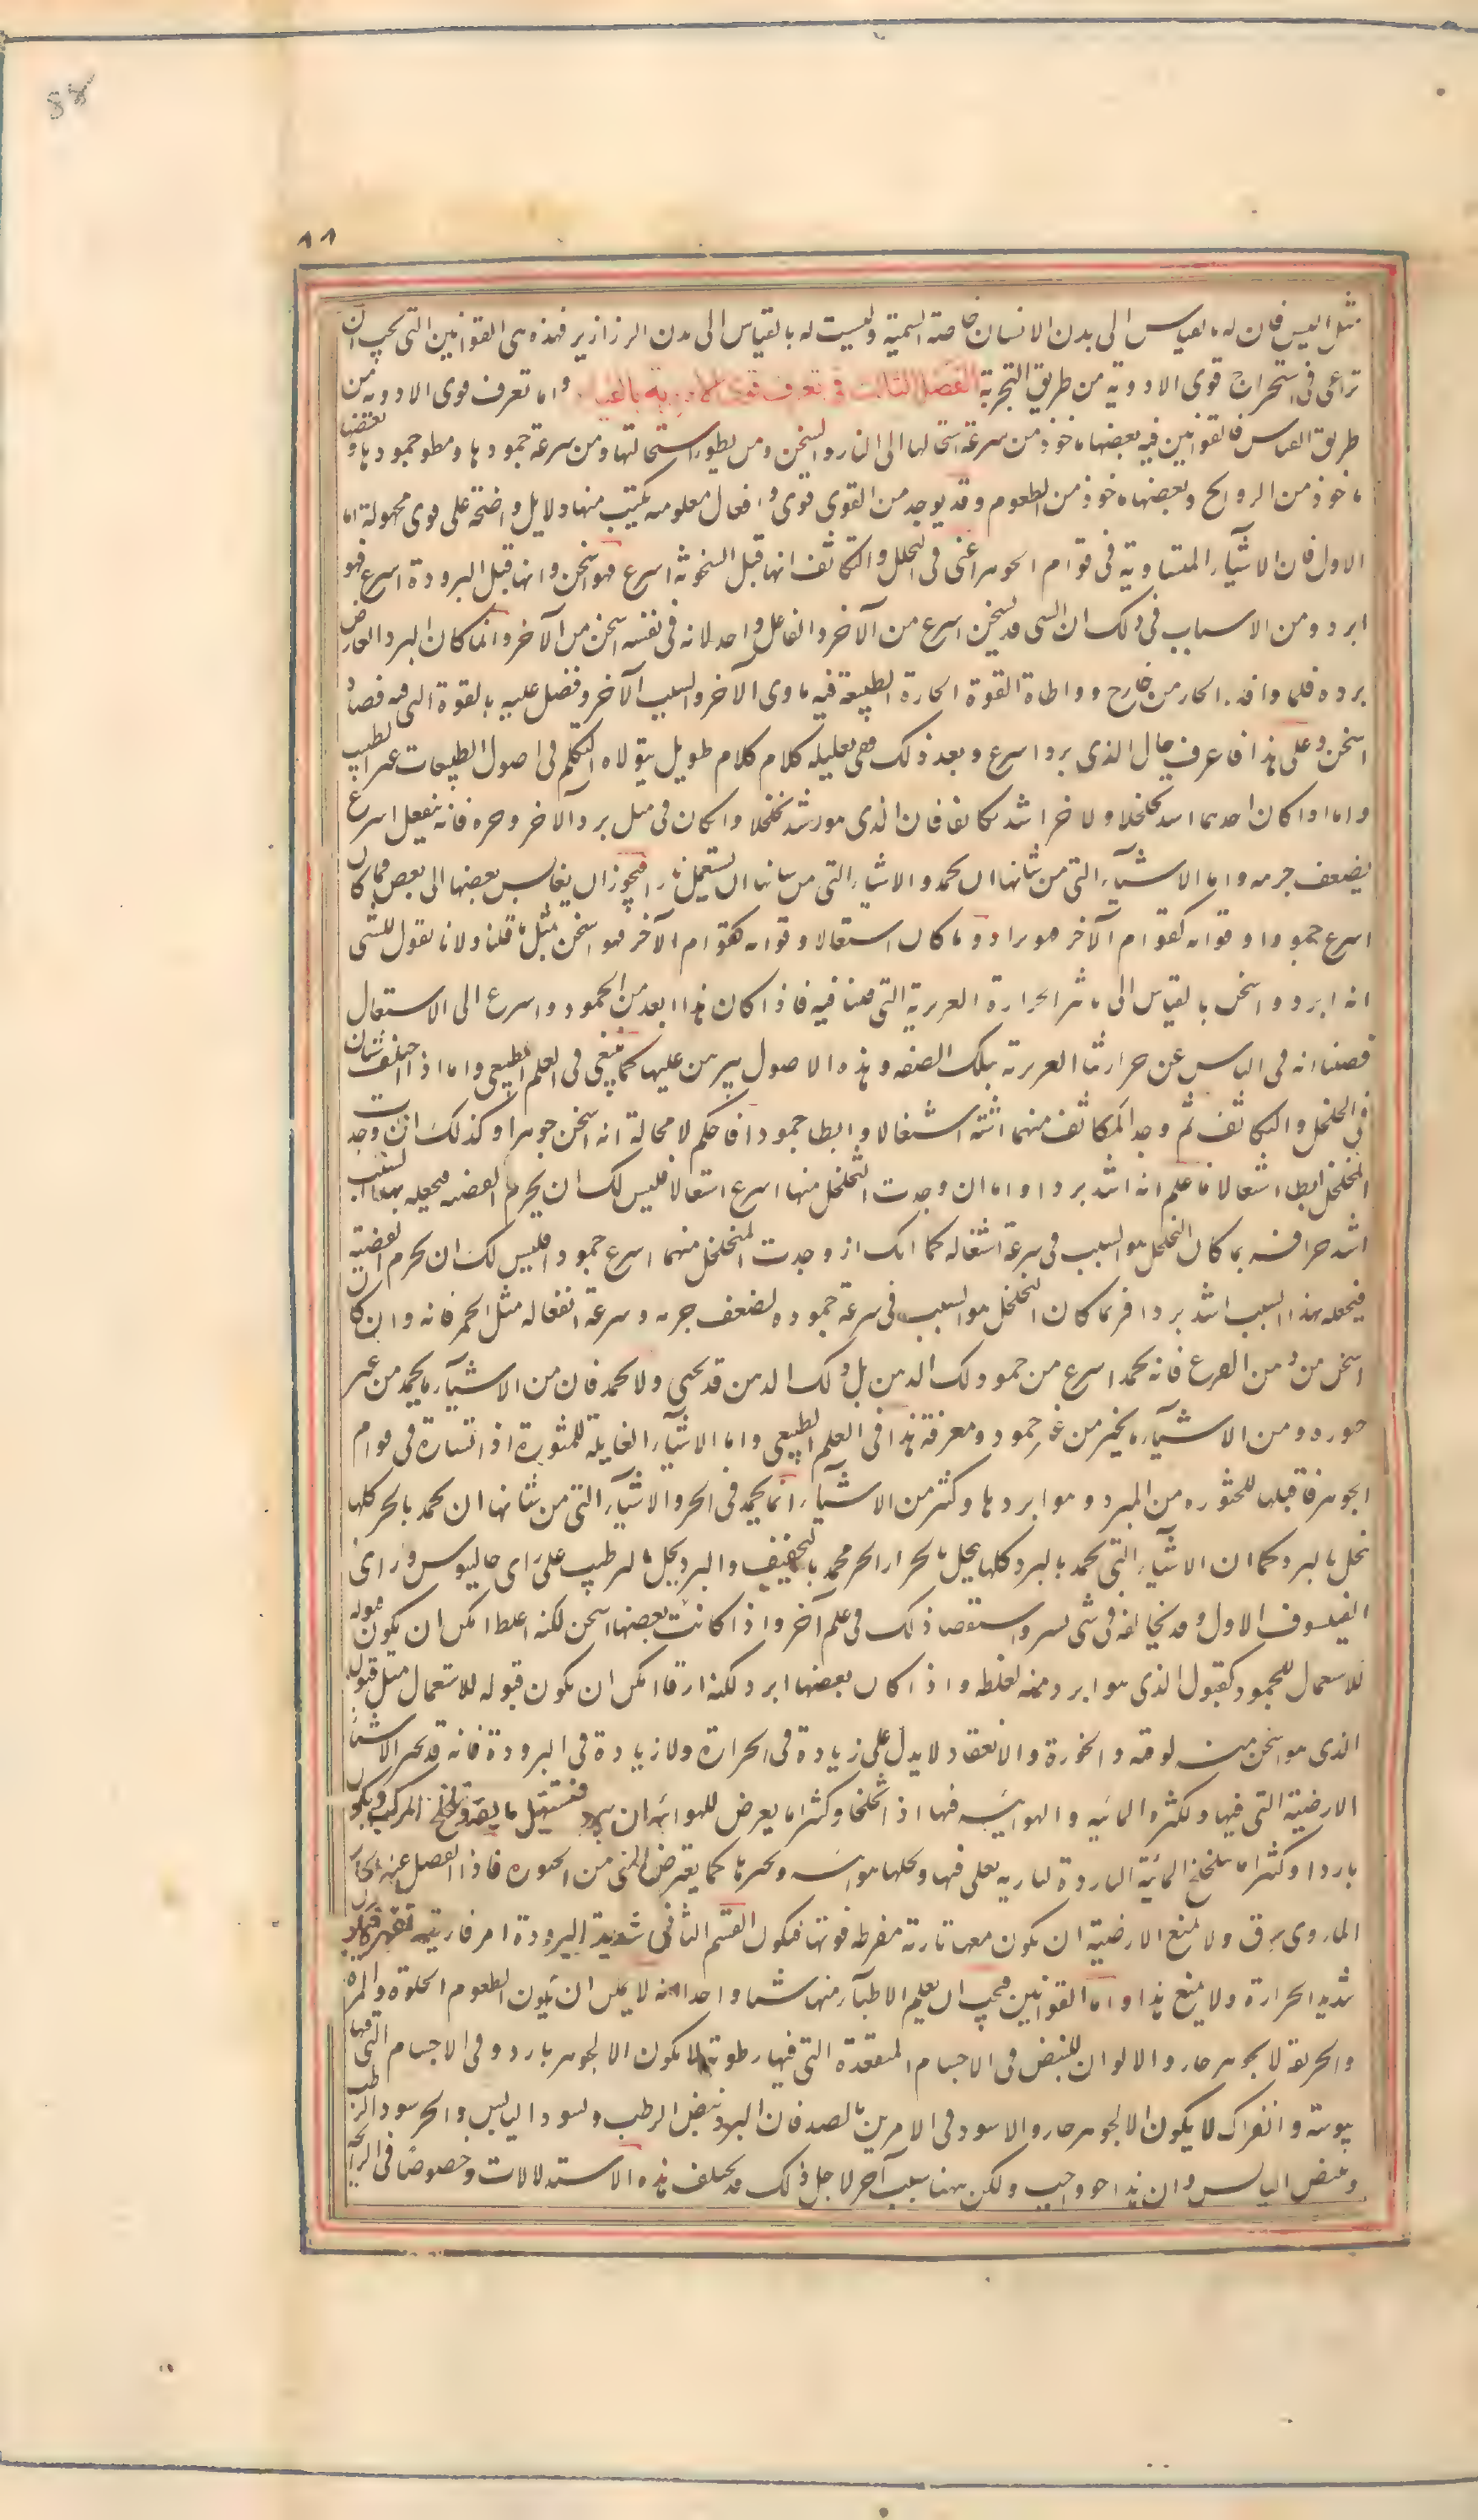 88
٨٨
مثل البيس فان له بالقياس الى بدن الانسان خاصة السمية وليست له بالقياس الى بدن الزرازير فهذه هى القوانين التى يجب ان
تراعى فى استخراج قوى الادوية من طريق التجربة الفصل الثالث فى تعرف قوى الادوية بالقياس واما تعرف قوى الادوية من
طريق القياس فالقوانين فيه بعضها ماخوذ من سرعة استحالتها الى النار والتسخن ومن بطوء استحالتها ومن سرعة جمودها وبطو جمودها وبعضها
ماخوذ من الروايح وبعضها ماخوذ من الطعوم وقد يوجد من القوى قوى وافعال معلومة يكتسب منها دلايل واضحة على قوى مجهولة اما
الاول فان الاشياء المتساوية فى قوام الجوهر اعنى فى التخلخل والتكاثف انها قبل السخونة اسرع فهو اسخن وانها قبل البرودة اسرع فهو
ابرد ومن الاسباب فى ذلك ان الشى قد يسخن اسرع من الآخر والفاعل واحد لانه فى نفسه اسخن من الآخر وانما كان البرد العارض
برده فلما وافه الحار من خارج وواطاه القوة الحارة الطبيعة فيه ساوى الآخر والسبب الآخر وفضل عليه بالقوة التى فيه فصار
اسخن وعلى هذا فاعرف حال الذى برد اسرع وبعد ذلك ففى تعليله كلام كلام طويل يتولاه المتكلم فى اصول الطبيعات غير الطبيب
واما اذا كان احدهما اشد تخلخلا والاخر اشد تكاثفا فان الذى هو اشد تخلخلا وان كان فى مثل برد الآخر وحره فانه ينفعل اسرع
لضعف جرمه واما الاشياء التى من شانها ان تجمد والاشياء التى من شانها ان تشتعل نارا فيجوز ان يقايس بعضها الى بعض فما كان
اسرع جمودا وقوامه كقوام الآخر فهو ابرد وما كان اسرع اشتعالا وقوامه كقوام الآخر فهو اسخن لمثل ما قلنا ولانا نقول للشى
انه ابرد واسخن بالقياس الى تاثير الحرارة الغريزية التى فينا فيه فاذا كان هذا ابعد من الجمود واسرع الى الاشتعال
قضينا انه فى التاثير عن حرارتنا الغريزية بتلك الصفة وهذه الاصول يبرهن عليها كما ينبغى فى العلم الطبيعى واما اذا اختلف شيئان
فى التخلخل والتكاثف ثم وجد المتكاثف منهما اشد اشتغالا وابطا جمودا فاحكم لا محالة انه اسخن جوهرا وكذلك ان وجدت
المتخلخل ابطا اشتعالا فاعلم انه اشد بردا واما ان وجدت المتخلخل منهما اسرع اشتعالا فليس لك ان تجزم القضية فتجعله بهذا السبب
اشد حرا فربما كان التخلخل هو السبب فى سرعة اشتعاله كما انك اذا وجدت المتخلخل منهما اسرع جمودا فليس لك ان تجزم القضية
فتجعله بهذا السبب اشد بردا فربما كان التخلخل هو السبب فى سرعة جموده لضعف جرمه وسرعة انفعاله مثل الخمر فانه وان كان
اسخن من دهن القرع فانه يجمد اسرع من جمود ذلك الدهن بل ذلك الدهن قد يخثر ولا يجمد فان من الاشياء ما يجمد من غير
خثورة ومن الاشياء ما يخثر من غير جمود ومعرفة هذا فى العلم الطبيعى واما الاشياء القابلة للخثورة اذا تساوت فى قوام
الجوهر فاقبلها للخثورة من البرد هو ابردها وكثير من الاشياء انما يجمد فى الحر والاشياء التى من شانها ان تجمد بالحر كلها
تنحل بالبرد كما ان الاشياء التى تجمد بالبرد كلها ينحل بالحر والحر يجمد بالتجفيف والبرد يحل بالترطيب على راى جالينوس وراى
الفيلسوف الاول وقد يخالفه فى شى يسير واستقصا ذلك فى علم آخر واذا كانت بعضها اسخن لكنه اغلظ امكن ان يكون قبوله
للاشتعال للجمود كقبول الذى هو ابرد منه لغلظه واذا كان بعضها ابرد لكنه ارق امكن ان يكون قبوله للاشتعال مثل قبول
الذى هو اسخن منه لرقته والخثورة والانعقاد لا يدل على زيادة فى الحرارة ولا زيادة فى البرودة فانه قد يخثر الاشياء
الارضية التى فيها ولكثرة المائية والهوائية فيها اذا تخلخلا وكثيرا ما يعرض للهوائية ان يبرد فيستحيل مائية وتخلخل المركب ويكون
باردا وكثيرا ما يتخلخل المائية الباردة لنارية يغلى فيها ويحلها هوائية ويخثرها كما يعرض للمنى من الخثورة فاذا انفصل عنه الحار
النارى رق ولا يمنع الارضية ان يكون معها نارية مفرطة قوتها فيكون القسم الثانى شديد البرودة ام فاترة فيكون
شديد الحرارة ولا يمنع هذا واما القوانين فيجب ان يعلم الاطباء منها شيئا واحدا انه لا يمكن ان يكون الطعوم الحلوة والمرة
والحريفة لا بجوهر حار والالوان للبيض فى الاجسام المنعقدة التى فيها رطوبة لا يكون الا لجوهر بارد وفى الاجسام التى فيها
يبوسة وانفراك لا يكون الا لجوهر حار والاسود فى الامرين بالضد فان البرد يبيض الرطب ويسود اليابس والحر يسود الرطب
ويبيض اليابس وان هذا حق واجب ولكن ههنا سبب آخر لاجل ذلك قد يختلف هذه الاستدلالات وخصوصا فى الرايحة